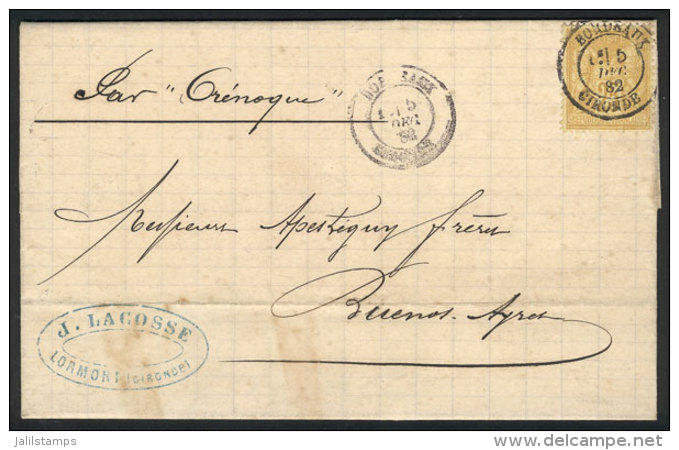 Par "Orénoque"
BORDEAUX
5
DEC
82
BORDEAUX
5
DEC
82
GIRONDE
Messieurs Apestéguy frères
Buenos-Ayres
J. LACOSSE
LORMONT (GIRONDE)
jalilstamps
http://www.delcampe.net